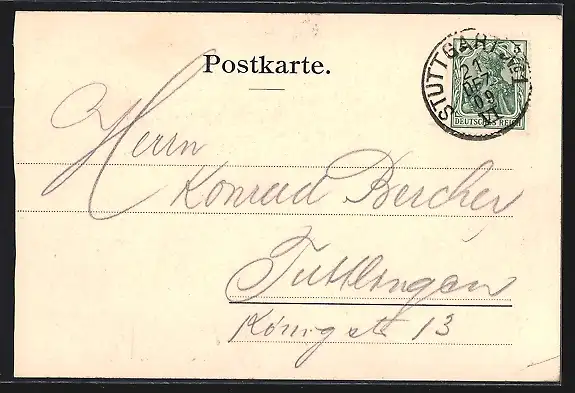 Postkarte.
STUTTGART
21
DEZ
09
5
DEUTSCHES REICH
Herrn
Konrad Bercher
Tuttlingen
Königstr 13